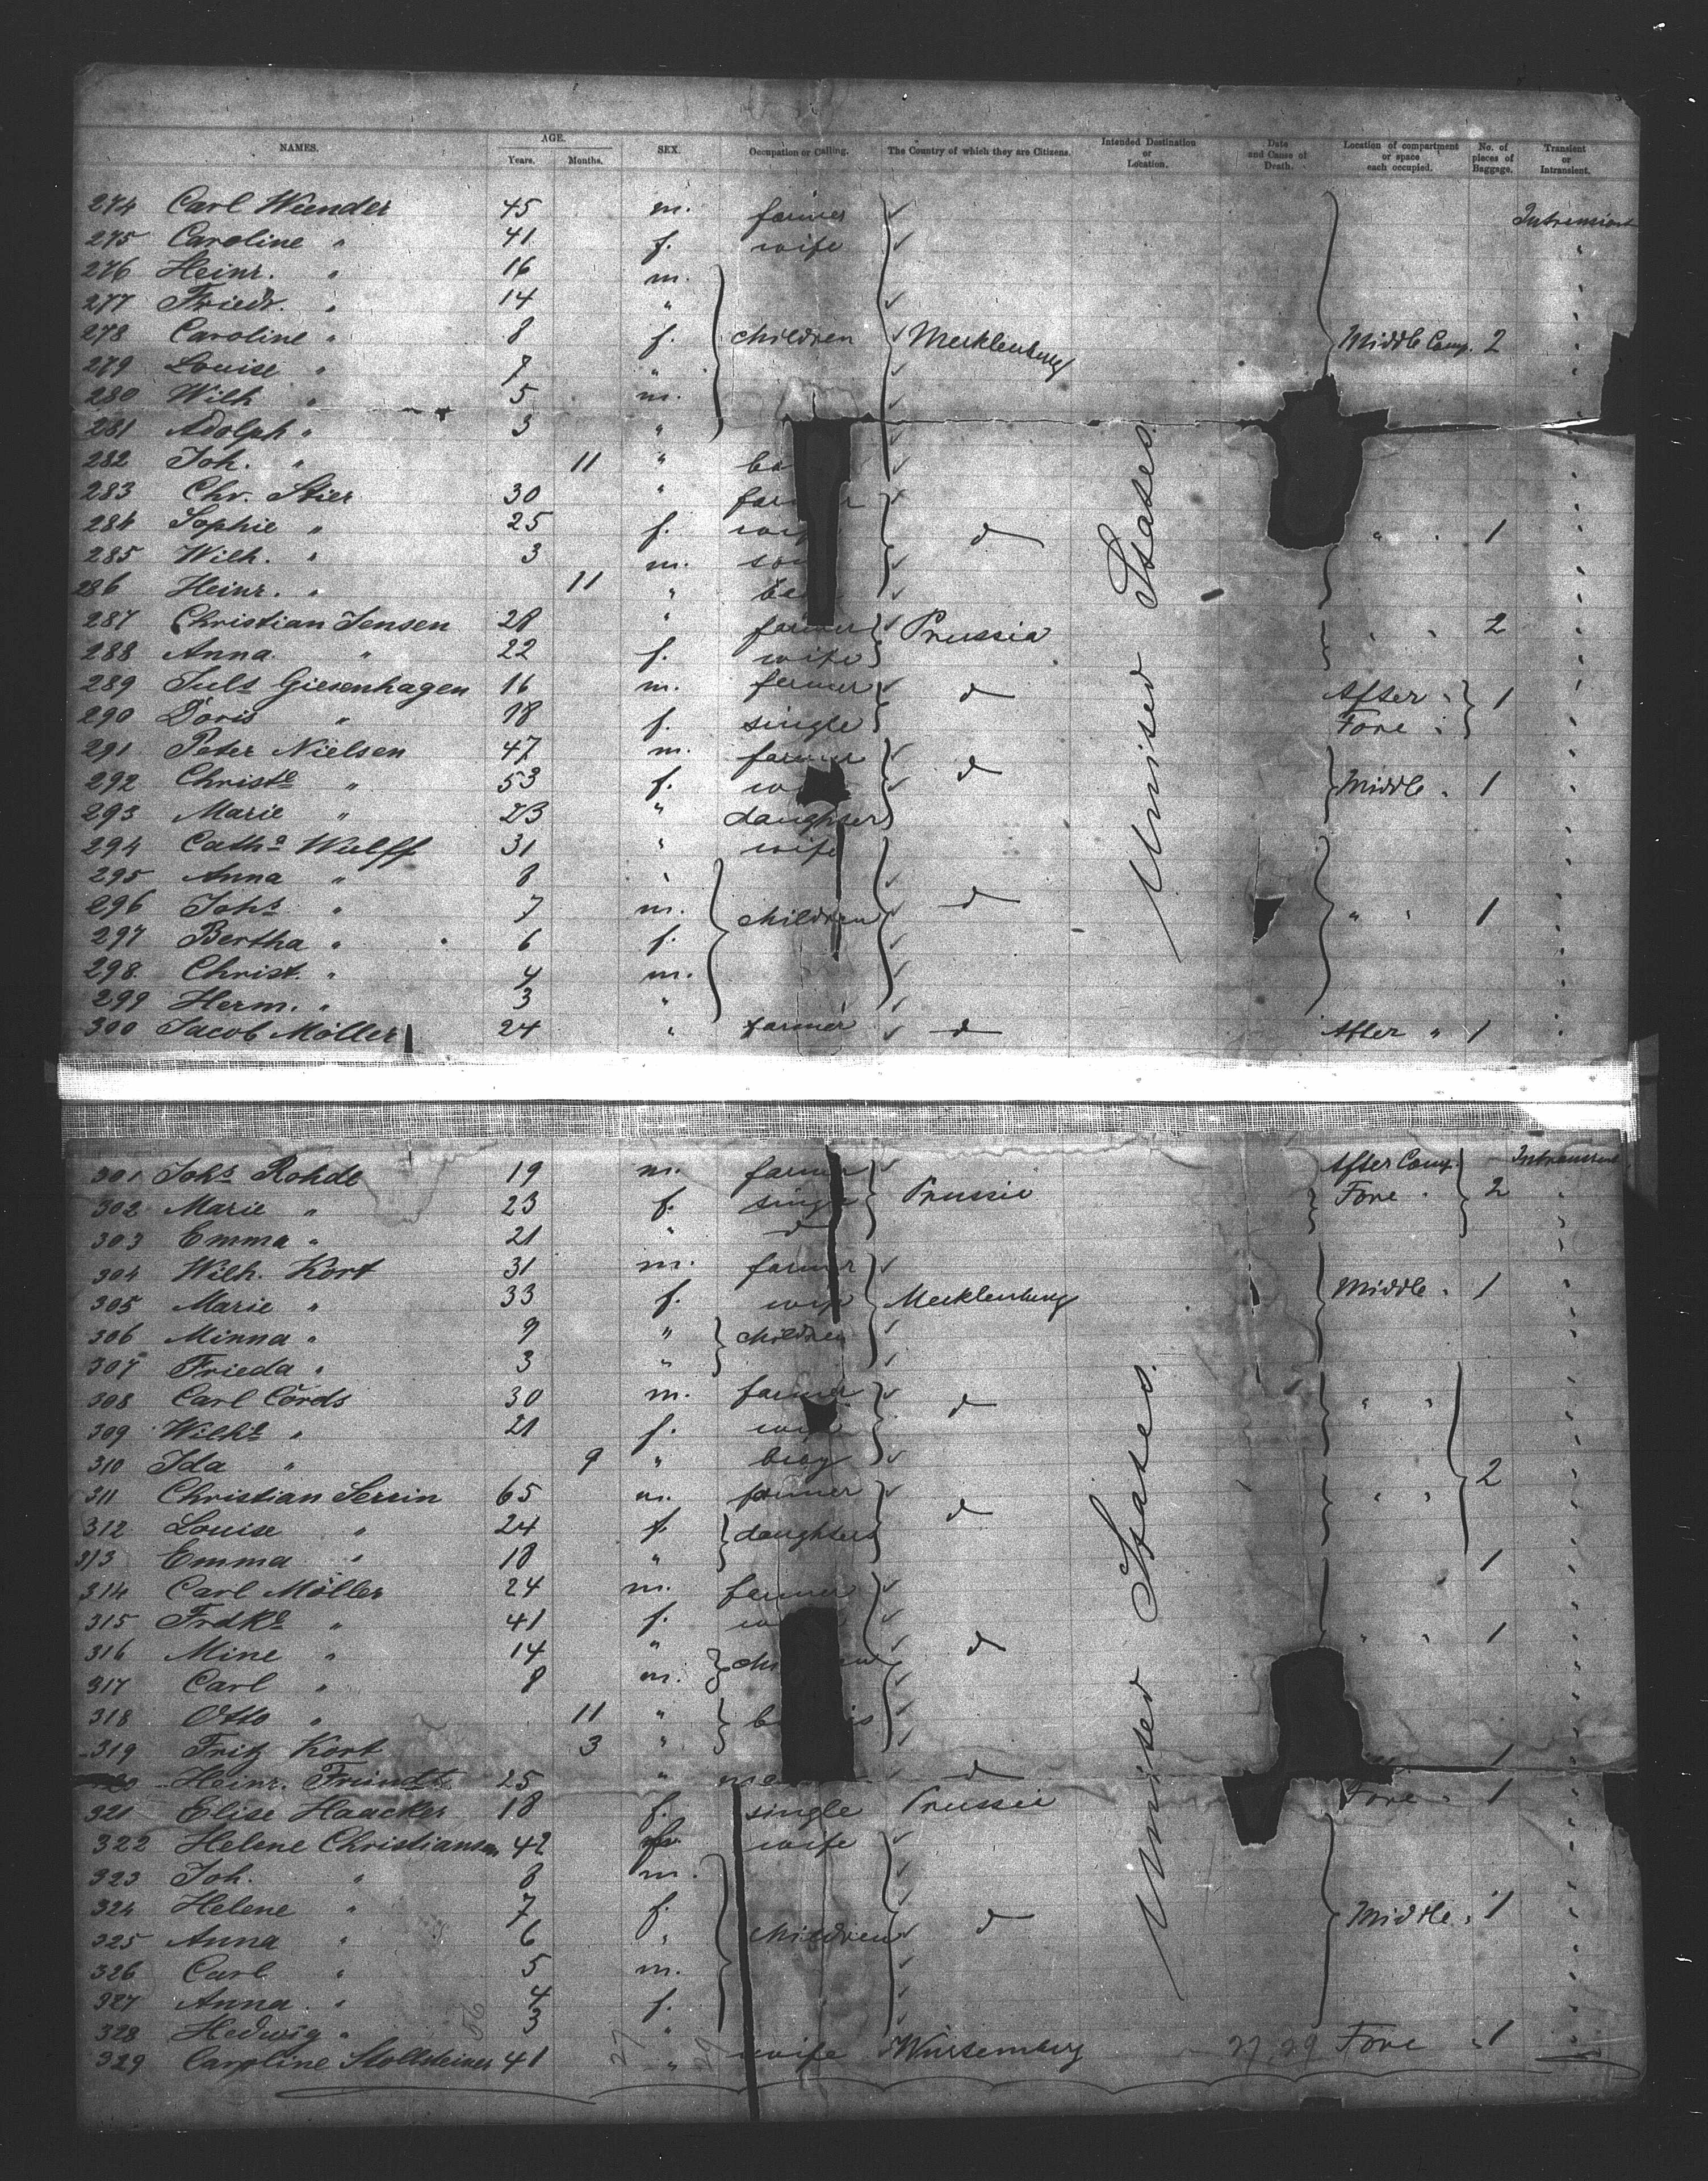 NAMES. AGE. Years. Months. SEX. Occupation or Calling. The Country of which they are Citizens. Intended Destination or Location. Date and Cause of Death. Location of compartment or space each occupied. No. of pieces of Baggage. Transient or Intransient.
274 Carl Wunder 45 m. farmer Intransient
275 Caroline " 41 f. wife "
276 Heinr. " 16 m. "
277 Friedr. " 14 " "
278 Caroline " 8 f. children Mecklenburg Middle Comp. 2 "
279 Louise " 7 " "
280 Wilh " 5 m. "
281 Adolph " 3 "
282 Joh. " 11 " ba "
283 Chr. Stier 30 " farmer "
284 Sophie " 25 f. wife d " " 1 "
285 Wilh. " 3 m. son "
286 Heinr. " 11 " ba "
287 Christian Jensen 28 " farmer Prussia " " 2 "
288 Anna " 22 f. wife "
289 Juls Giesenhagen 16 m. farmer d After " 1 "
290 Doris " 18 f. single Fore " "
291 Peter Nielsen 47 m. farmer d "
292 Christe " 53 f. w Middle " 1 "
293 Marie " 23 " daughter "
294 Catha Wulff 31 " wife "
295 Anna " 8 " "
296 Johs " 7 m. children d " " 1 "
297 Bertha " 6 f. "
298 Christ. " 4 m. "
299 Herm. " 3 " "
300 Jacob Möller 24 " farmer d After " 1 "
United States.
301 Johs Rohde 19 m. farmer After Comp. Intransient
302 Marie " 23 f. single Prussia Fore " 2 "
303 Emma " 21 " d "
304 Wilh. Kort 31 m. farmer "
305 Marie " 33 f. wife Mecklenburg Middle " 1 "
306 Minna " 9 " children "
307 Frieda " 3 " "
308 Carl Cords 30 m. farmer d " " "
309 Wilhe " 21 f. wife "
310 Ida " 9 " "
311 Christian Serrin 65 m. farmer d " " 2 "
312 Louise " 24 f. daughters "
313 Emma " 18 " 1 "
314 Carl Möller 24 m. farmer "
315 Frdke " 41 f. w "
316 Mine " 14 " d " " 1 "
317 Carl " 8 m. "
318 Otto " 11 " "
319 Fritz Kort 3 " 1 "
Heinr. Fründt 25 " d "
321 Elise Haacker 18 f. single Prussia Fore " 1 "
322 Helene Christiansen 42 wife "
323 Joh. " 8 m. "
324 Helene " 7 f. d Middle " 1 "
325 Anna " 6 " children "
326 Carl " 5 m. "
327 Anna " 4 f. "
328 Hedwig " 3 " "
329 Caroline Stollsteiner 41 " wife Würtemberg 27 29 Fore " 1
United States.
56 27 29